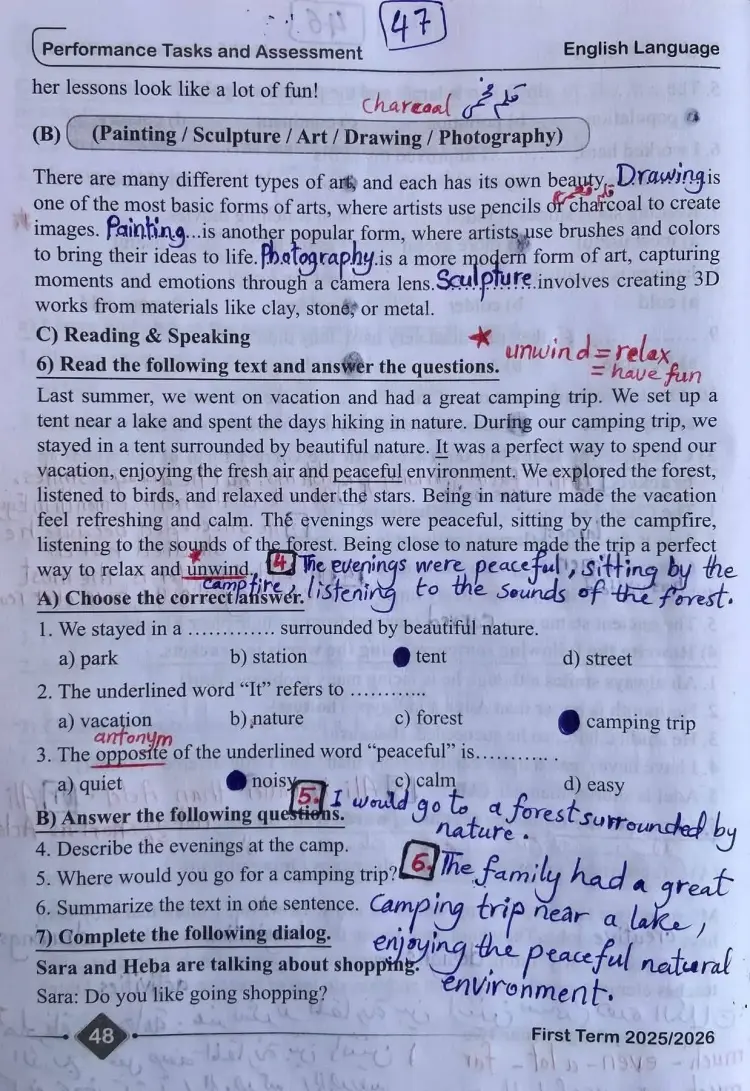 47
Performance Tasks and Assessment English Language
her lessons look like a lot of fun!
charcoal قلم فحم
(B) (Painting / Sculpture / Art / Drawing / Photography)
There are many different types of art, and each has its own beauty. Drawing is
one of the most basic forms of arts, where artists use pencils or charcoal to create
images. Painting...is another popular form, where artists use brushes and colors
to bring their ideas to life. Photography.is a more modern form of art, capturing
moments and emotions through a camera lens. Sculpture...involves creating 3D
works from materials like clay, stone, or metal.
C) Reading & Speaking
* unwind = relax
= have fun
6) Read the following text and answer the questions.
Last summer, we went on vacation and had a great camping trip. We set up a
tent near a lake and spent the days hiking in nature. During our camping trip, we
stayed in a tent surrounded by beautiful nature. It was a perfect way to spend our
vacation, enjoying the fresh air and peaceful environment. We explored the forest,
listened to birds, and relaxed under the stars. Being in nature made the vacation
feel refreshing and calm. The evenings were peaceful, sitting by the campfire,
listening to the sounds of the forest. Being close to nature made the trip a perfect
way to relax and unwind. 4. The evenings were peaceful, sitting by the
campfire, listening to the sounds of the forest.
A) Choose the correct answer.
1. We stayed in a ............ surrounded by beautiful nature.
a) park b) station tent d) street
2. The underlined word “It” refers to ............
a) vacation b) nature c) forest camping trip
antonym
3. The opposite of the underlined word “peaceful” is............ .
a) quiet noisy c) calm d) easy
5. I would go to a forest surrounded by
nature.
B) Answer the following questions.
4. Describe the evenings at the camp.
5. Where would you go for a camping trip?
6. The family had a great
6. Summarize the text in one sentence.
camping trip near a lake,
7) Complete the following dialog.
enjoying the peaceful natural
environment.
Sara and Heba are talking about shopping.
Sara: Do you like going shopping?
48 First Term 2025/2026